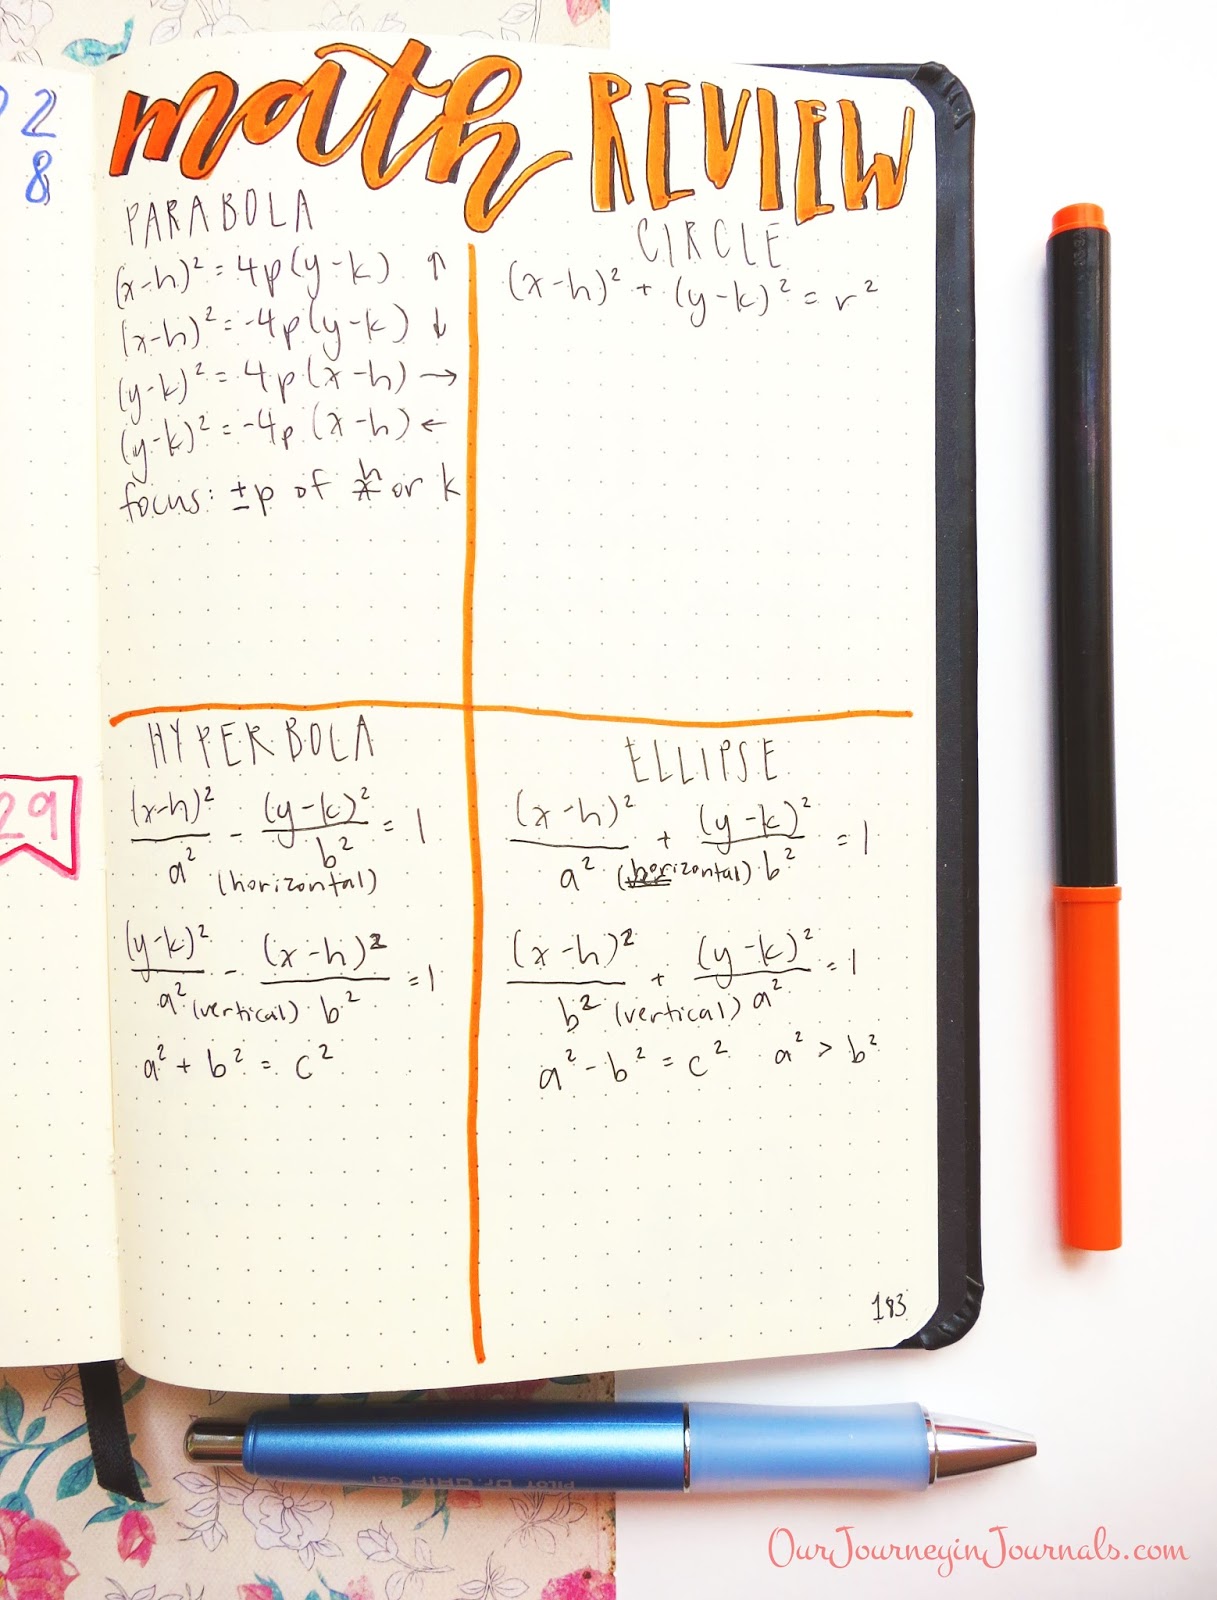 2
8
29
math REVIEW
PARABOLA
(x-h)² = 4p(y-k) ↑
(x-h)² = -4p(y-k) ↓
(y-k)² = 4p(x-h) →
(y-k)² = -4p(x-h) ←
focus: ±p of h or k
CIRCLE
(x-h)² + (y-k)² = r²
HYPERBOLA
(x-h)²/a² - (y-k)²/b² = 1
(horizontal)
(y-k)²/a² - (x-h)²/b² = 1
(vertical)
a² + b² = c²
ELLIPSE
(x-h)²/a² + (y-k)²/b² = 1
(horizontal)
(x-h)²/b² + (y-k)²/a² = 1
(vertical)
a² - b² = c² a² > b²
183
PILOT DR. GRIP GEL
OurJourneyinJournals.com